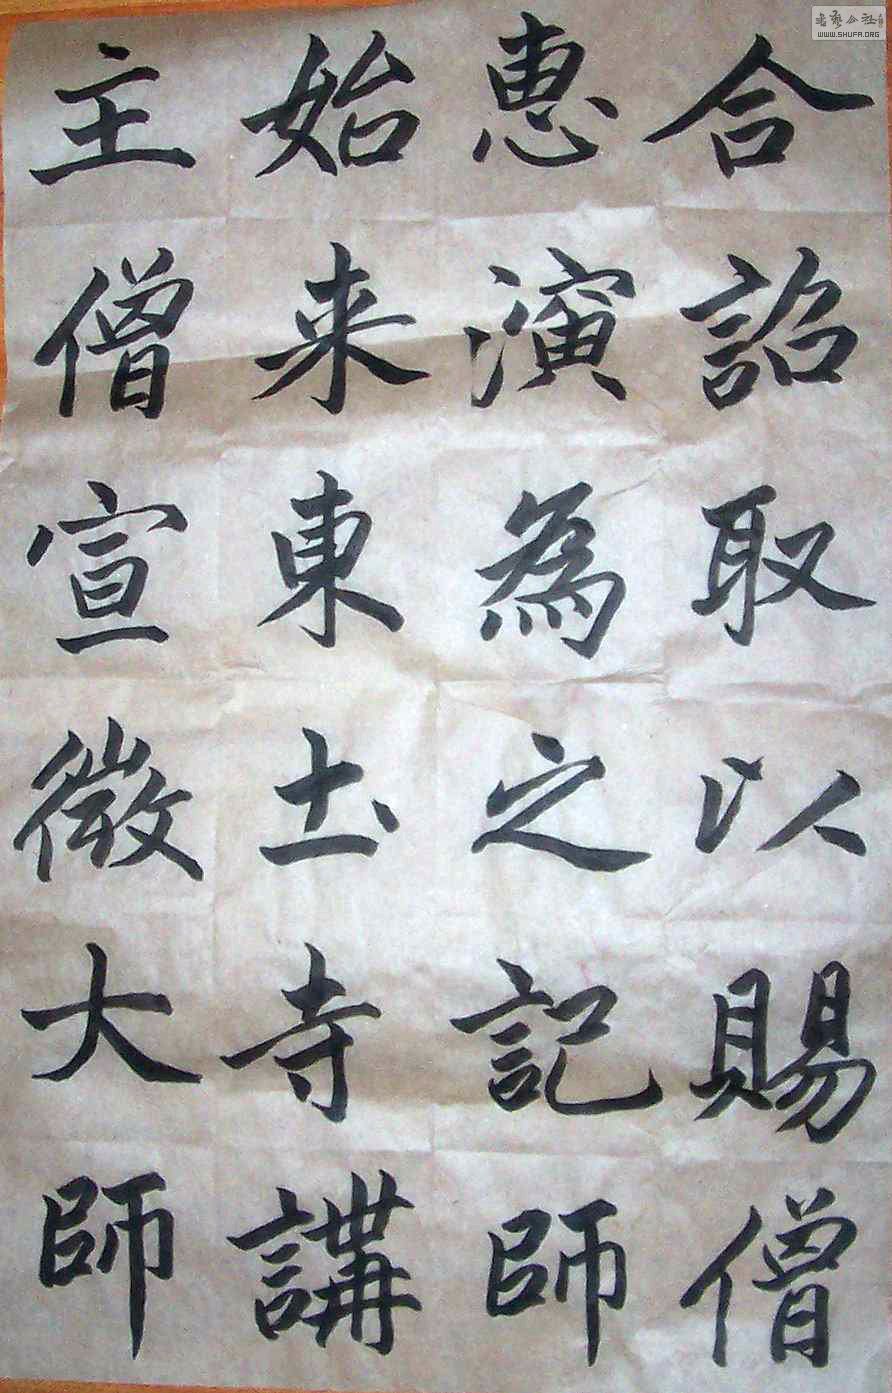 合詔取以賜僧
惠演為之記師
始来東土寺講
主僧宣微大師
WWW.SHUFA.ORG